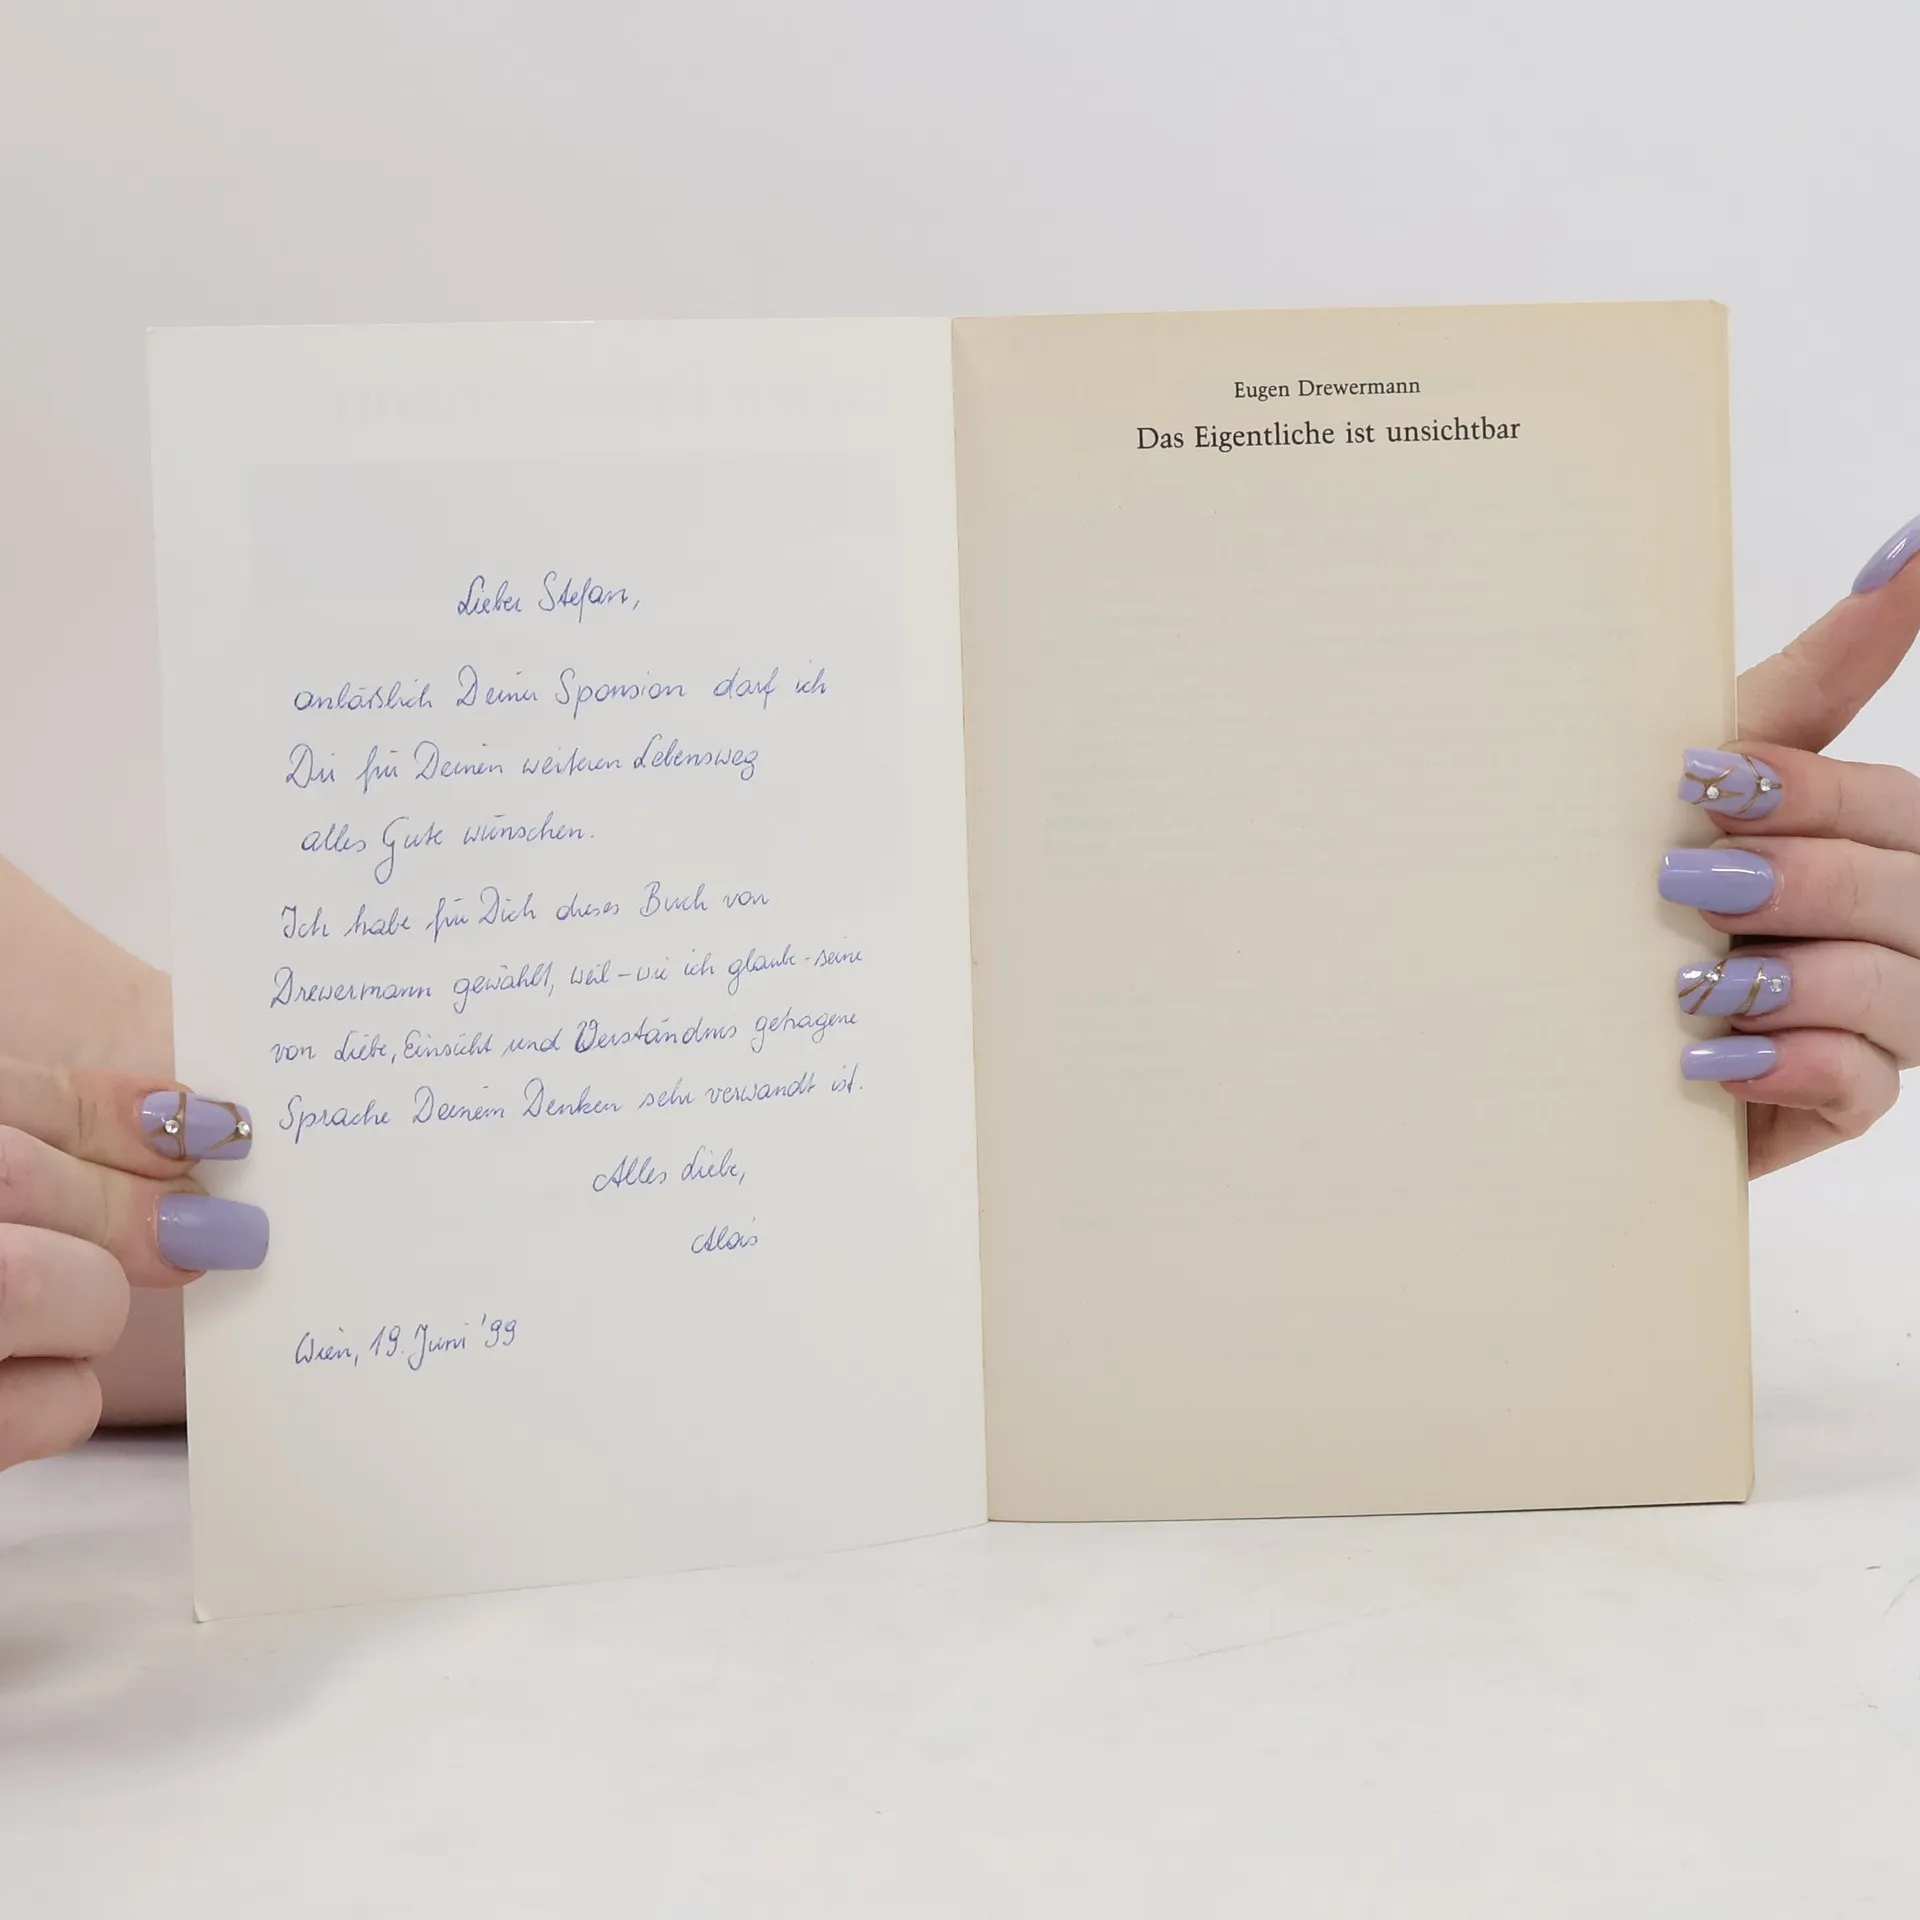 Lieber Stefan,
anläßlich Deiner Sponsion darf ich
Dir für Deinen weiteren Lebensweg
alles Gute wünschen.
Ich habe für Dich dieses Buch von
Drewermann gewählt, weil – wie ich glaube – seine
von Liebe, Einsicht und Verständnis getragene
Sprache Deinem Denken sehr verwandt ist.
Alles Liebe,
Alois
Wien, 19. Juni '99
Eugen Drewermann
Das Eigentliche ist unsichtbar